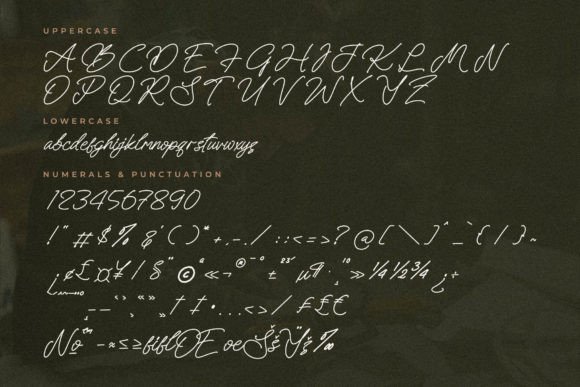 UPPERCASE
A B C D E F G H I J K L M N
O P Q R S T U V W X Y Z
LOWERCASE
abcdefghijklmnopqrstuvwxyz
NUMERALS & PUNCTUATION
1234567890
! " # $ % & ' ( ) * + , - . / : ; < = > ? @ [ \ ] ^ _ ` { / } ~
¡ ¢ £ ¤ ¥ / § ¨ © ª « ¬ ® ¯ ° ± ² ³ ´ µ ¶ · ¸ ¹ º » ¼ ½ ¾ ¿ ÷
– — ‘ ’ “ ” † ‡ • … < > / ₣ £ €
№ ™ − ≈ ≤ ≥ fi fl Œ œ Š š Ÿ ž ‰